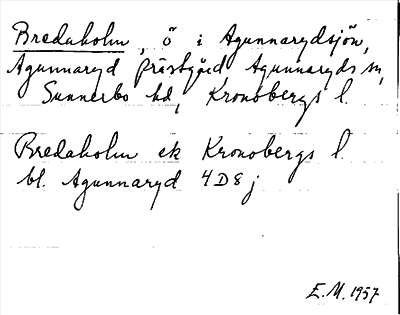 Bredaholm, ö i Agunnarydsjön,
Agunnaryd prästgård Agunnaryds sn,
Sunnerbo hd, Kronobergs l.
Bredaholm ek Kronobergs l
bl. Agunnaryd 4D8j
E.M. 1957